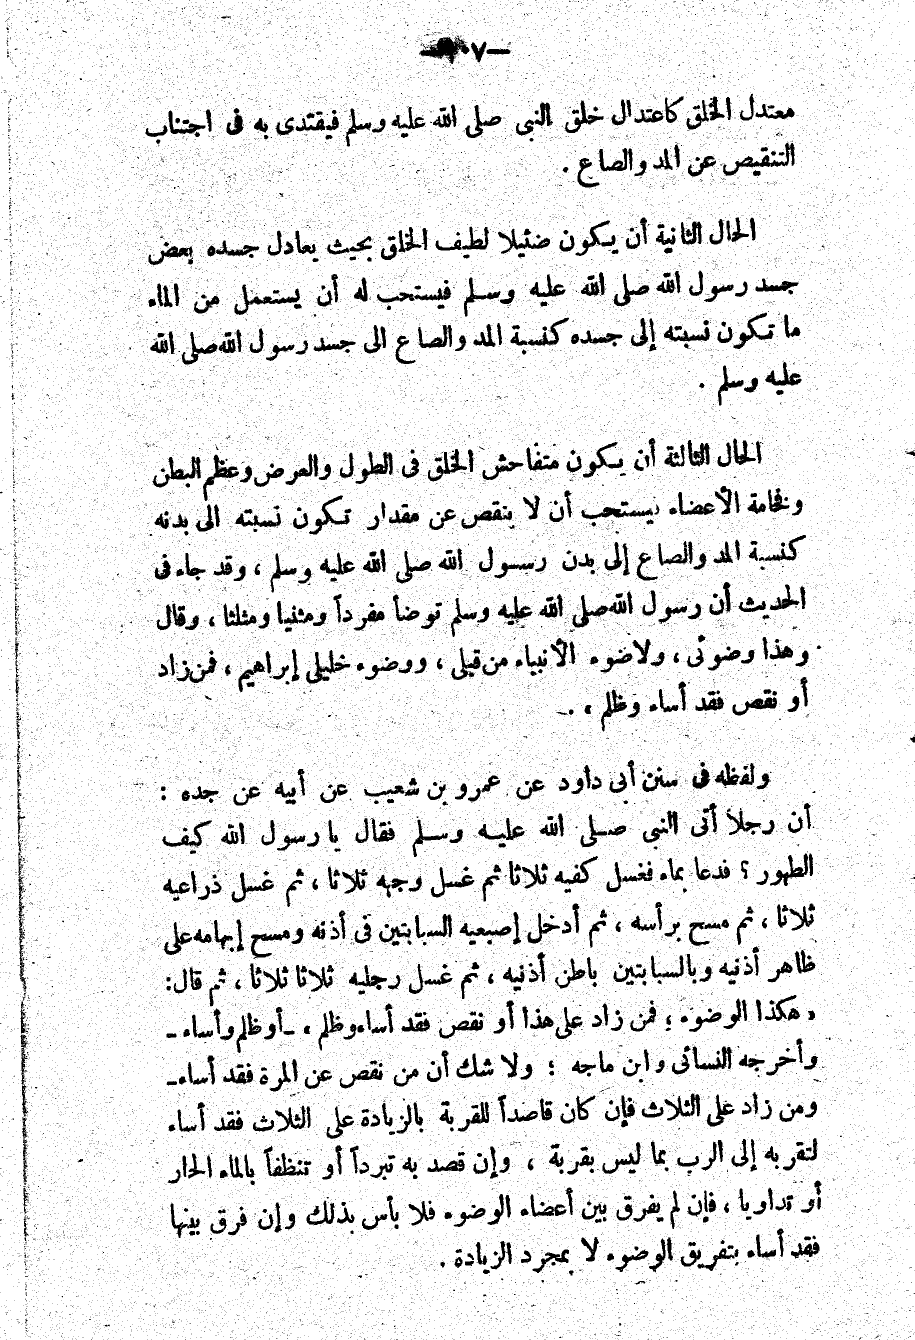 معتدل الخلق كاعتدال خلق النبى صلى الله عليه وسلم فيقتدى به فى اجتناب
التنقيص عن المد والصاع .
الحال الثانية أن يكون ضئيلا لطيف الخلق بحيث يعادل جسده بعض
جسد رسول الله صلى الله عليه وسلم فيستحب له أن يستعمل من الماء
ما تكون نسبته إلى جسده كنسبة المد والصاع الى جسد رسول الله صلى الله
عليه وسلم .
الحال الثالثة أن يكون متفاحش الخلق فى الطول والعرض وعظم البطن
وفخامة الأعضاء فيستحب أن لا ينقص عن مقدار تكون نسبته الى بدنه
كنسبة المد والصاع إلى بدن رسول الله صلى الله عليه وسلم ، وقد جاء فى
الحديث أن رسول الله صلى الله عليه وسلم توضأ مفرداً ومثنيا ومثلثا ، وقال
« هذا وضوئى ، ولاضوء الأنبياء من قبلى ، ووضوء خليلى إبراهيم ، فمن زاد
أو نقص فقد أساء وظلم » .
ولفظه فى سنن أبى داود عن عمرو بن شعيب عن أبيه عن جده :
أن رجلا أتى النبى صلى الله عليه وسلم فقال يا رسول الله كيف
الطهور ؟ فدعا بماء فغسل كفيه ثلاثا ثم غسل وجهه ثلاثا ، ثم غسل ذراعيه
ثلاثا ، ثم مسح برأسه ، ثم أدخل إصبعيه السبابتين فى أذنه ومسح إبهامه على
ظاهر أذنيه وبالسبابتين باطن أذنيه ، ثم غسل رجليه ثلاثا ثلاثا ، ثم قال :
« هكذا الوضوء ؛ فمن زاد على هذا أو نقص فقد أساء وظلم » ـ أو ظلم وأساء ـ
وأخرجه النسائى وابن ماجه ؛ ولا شك أن من نقص عن المرة فقد أساء ـ
ومن زاد على الثلاث فإن كان قاصداً للقربة بالزيادة على الثلاث فقد أساء
لتقربه إلى الرب بما ليس بقربة ، وإن قصد به تبرداً أو تنظفاً بالماء الحار
أو تداويا ، فإن لم يفرق بين أعضاء الوضوء فلا بأس بذلك وإن فرق بينها
فقد أساء بتفريق الوضوء لا بمجرد الزيادة .